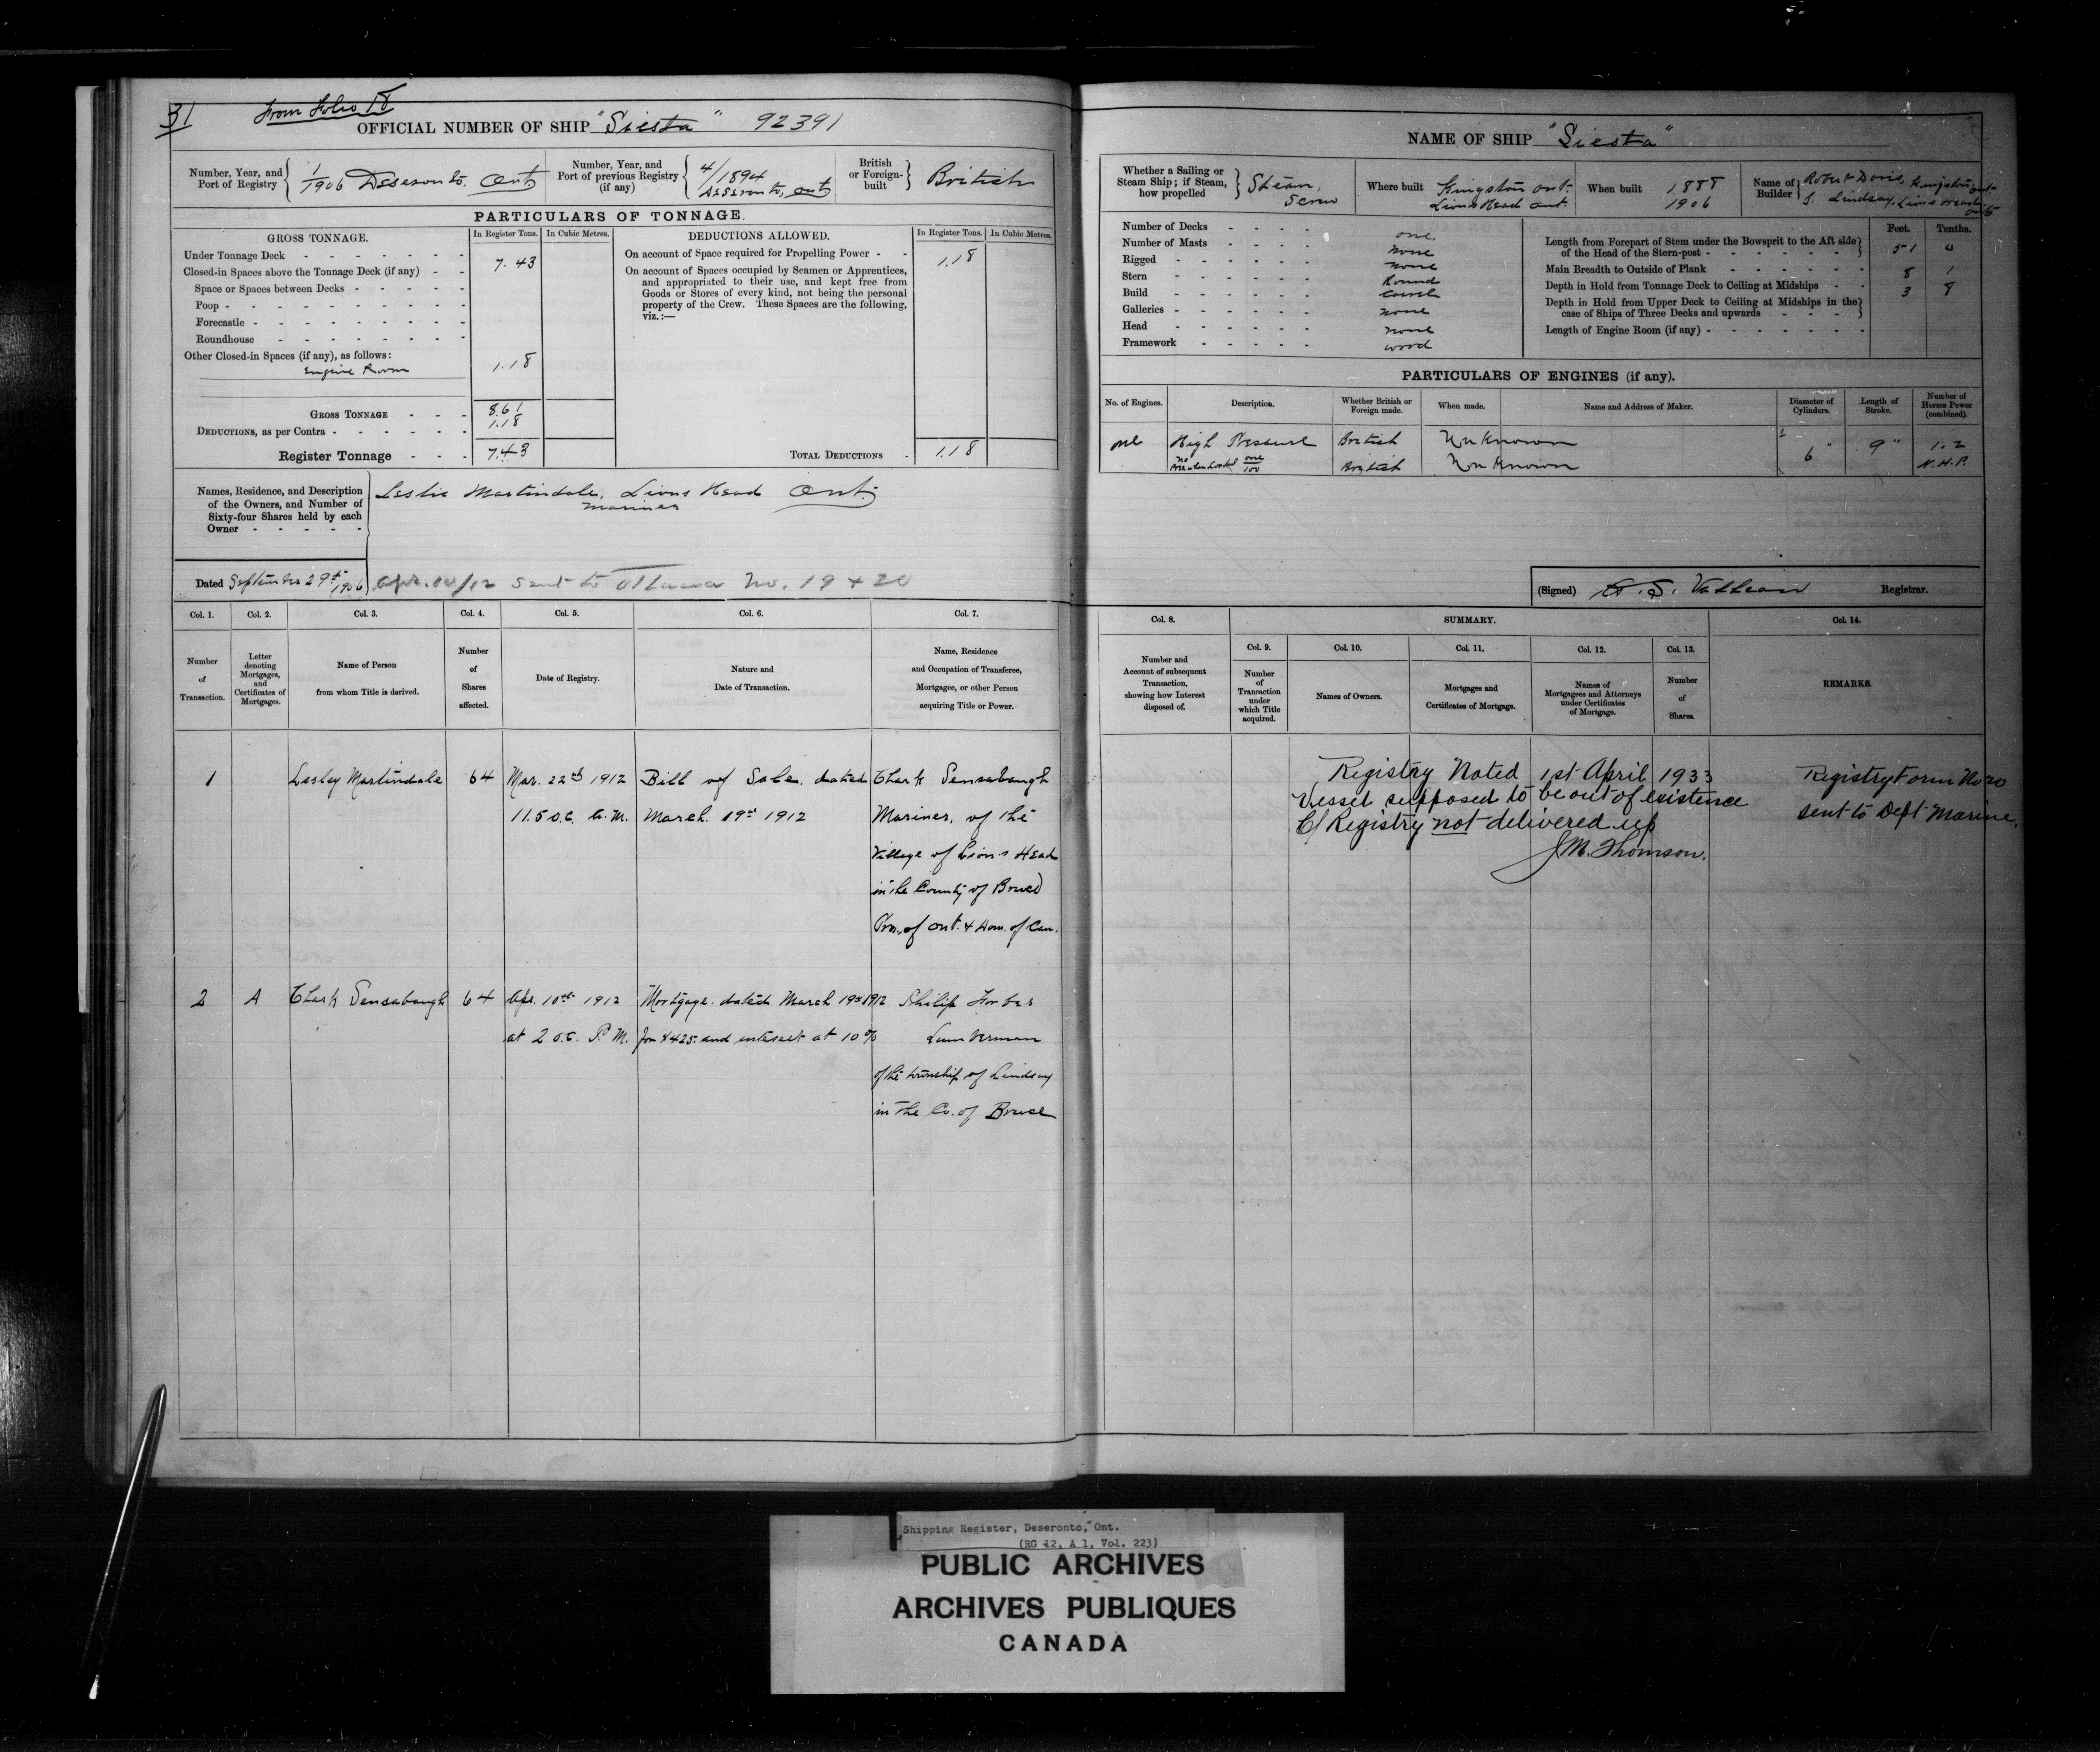 31
From Folio 18
OFFICIAL NUMBER OF SHIP "Siesta" 92391
Number, Year, and Port of Registry 1/1906 Deseronto. Ont.
Number, Year, and Port of previous Registry (if any) 4/1894 Deseronto, Ont
British or Foreign-built British
PARTICULARS OF TONNAGE.
GROSS TONNAGE. In Register Tons. In Cubic Metres.
DEDUCTIONS ALLOWED. In Register Tons. In Cubic Metres.
Under Tonnage Deck 7.43
Closed-in Spaces above the Tonnage Deck (if any)
Space or Spaces between Decks
Poop
Forecastle
Roundhouse
Other Closed-in Spaces (if any), as follows:
Engine Room 1.18
GROSS TONNAGE 8.61
DEDUCTIONS, as per Contra 1.18
Register Tonnage 7.43
On account of Space required for Propelling Power 1.18
On account of Spaces occupied by Seamen or Apprentices,
and appropriated to their use, and kept free from
Goods or Stores of every kind, not being the personal
property of the Crew. These Spaces are the following,
viz.:—
TOTAL DEDUCTIONS 1.18
Names, Residence, and Description
of the Owners, and Number of
Sixty-four Shares held by each
Owner
Leslie Martindale, Lions Head Ont.
mariner
Dated September 29th 1906
Apr. 10/12 sent to Ottawa No. 19 + 20
Col. 1. Col. 2. Col. 3. Col. 4. Col. 5. Col. 6. Col. 7.
Number of Transaction.
Letter denoting Mortgages, and Certificates of Mortgages.
Name of Person from whom Title is derived.
Number of Shares affected.
Date of Registry.
Nature and Date of Transaction.
Name, Residence and Occupation of Transferee, Mortgagee, or other Person acquiring Title or Power.
1 Lesley Martindale 64 Mar. 22nd 1912 Bill of Sale. dated Clark Sensabaugh
11.5 o.c. A.M. March 19th 1912 Mariner, of the
Village of Lion's Head
in the County of Bruce
Prov. of Ont. & Dom. of Can.
2 A Clark Sensabaugh 64 Apr. 10th 1912 Mortgage. dated March 19th 1912 Philip Forbes
at 2 o.c. P.M. for $425. and interest at 10% Lumberman
of the township of Lindsay
in the Co. of Bruce
NAME OF SHIP "Siesta"
Whether a Sailing or Steam Ship; if Steam, how propelled Steam, Screw
Where built Kingston Ont. Lions Head Ont.
When built 1888 1906
Name of Builder Robert Davis, Kingston Ont J. Lindsay, Lions Head Ont
Number of Decks one
Number of Masts none
Rigged none
Stern Round
Build Carvel
Galleries none
Head none
Framework wood
Feet. Tenths.
Length from Forepart of Stem under the Bowsprit to the Aft side
of the Head of the Stern-post 51 0
Main Breadth to Outside of Plank 8 1
Depth in Hold from Tonnage Deck to Ceiling at Midships 3 8
Depth in Hold from Upper Deck to Ceiling at Midships in the
case of Ships of Three Decks and upwards
Length of Engine Room (if any)
PARTICULARS OF ENGINES (if any).
No. of Engines. Description. Whether British or Foreign made. When made. Name and Address of Maker. Diameter of Cylinders. Length of Stroke. Number of Horses Power (combined).
one High Pressure British Unknown 6" 9" 1.2
British Unknown N.H.P.
(Signed) Registrar.
Col. 8. SUMMARY. Col. 14.
Col. 9. Col. 10. Col. 11. Col. 12. Col. 13.
Number and Account of subsequent Transaction, showing how Interest disposed of.
Number of Transaction under which Title acquired.
Names of Owners.
Mortgages and Certificates of Mortgage.
Names of Mortgagees and Attorneys under Certificates of Mortgage.
Number of Shares.
REMARKS.
Registry Noted 1st April 1933
Vessel supposed to be out of existence
C/ Registry not delivered up
J.M. Thomson.
Registry Form No 20
sent to Dept Marine.
Shipping Register, Deseronto, Ont.
(RG 12, A 1, Vol. 223)
PUBLIC ARCHIVES
ARCHIVES PUBLIQUES
CANADA